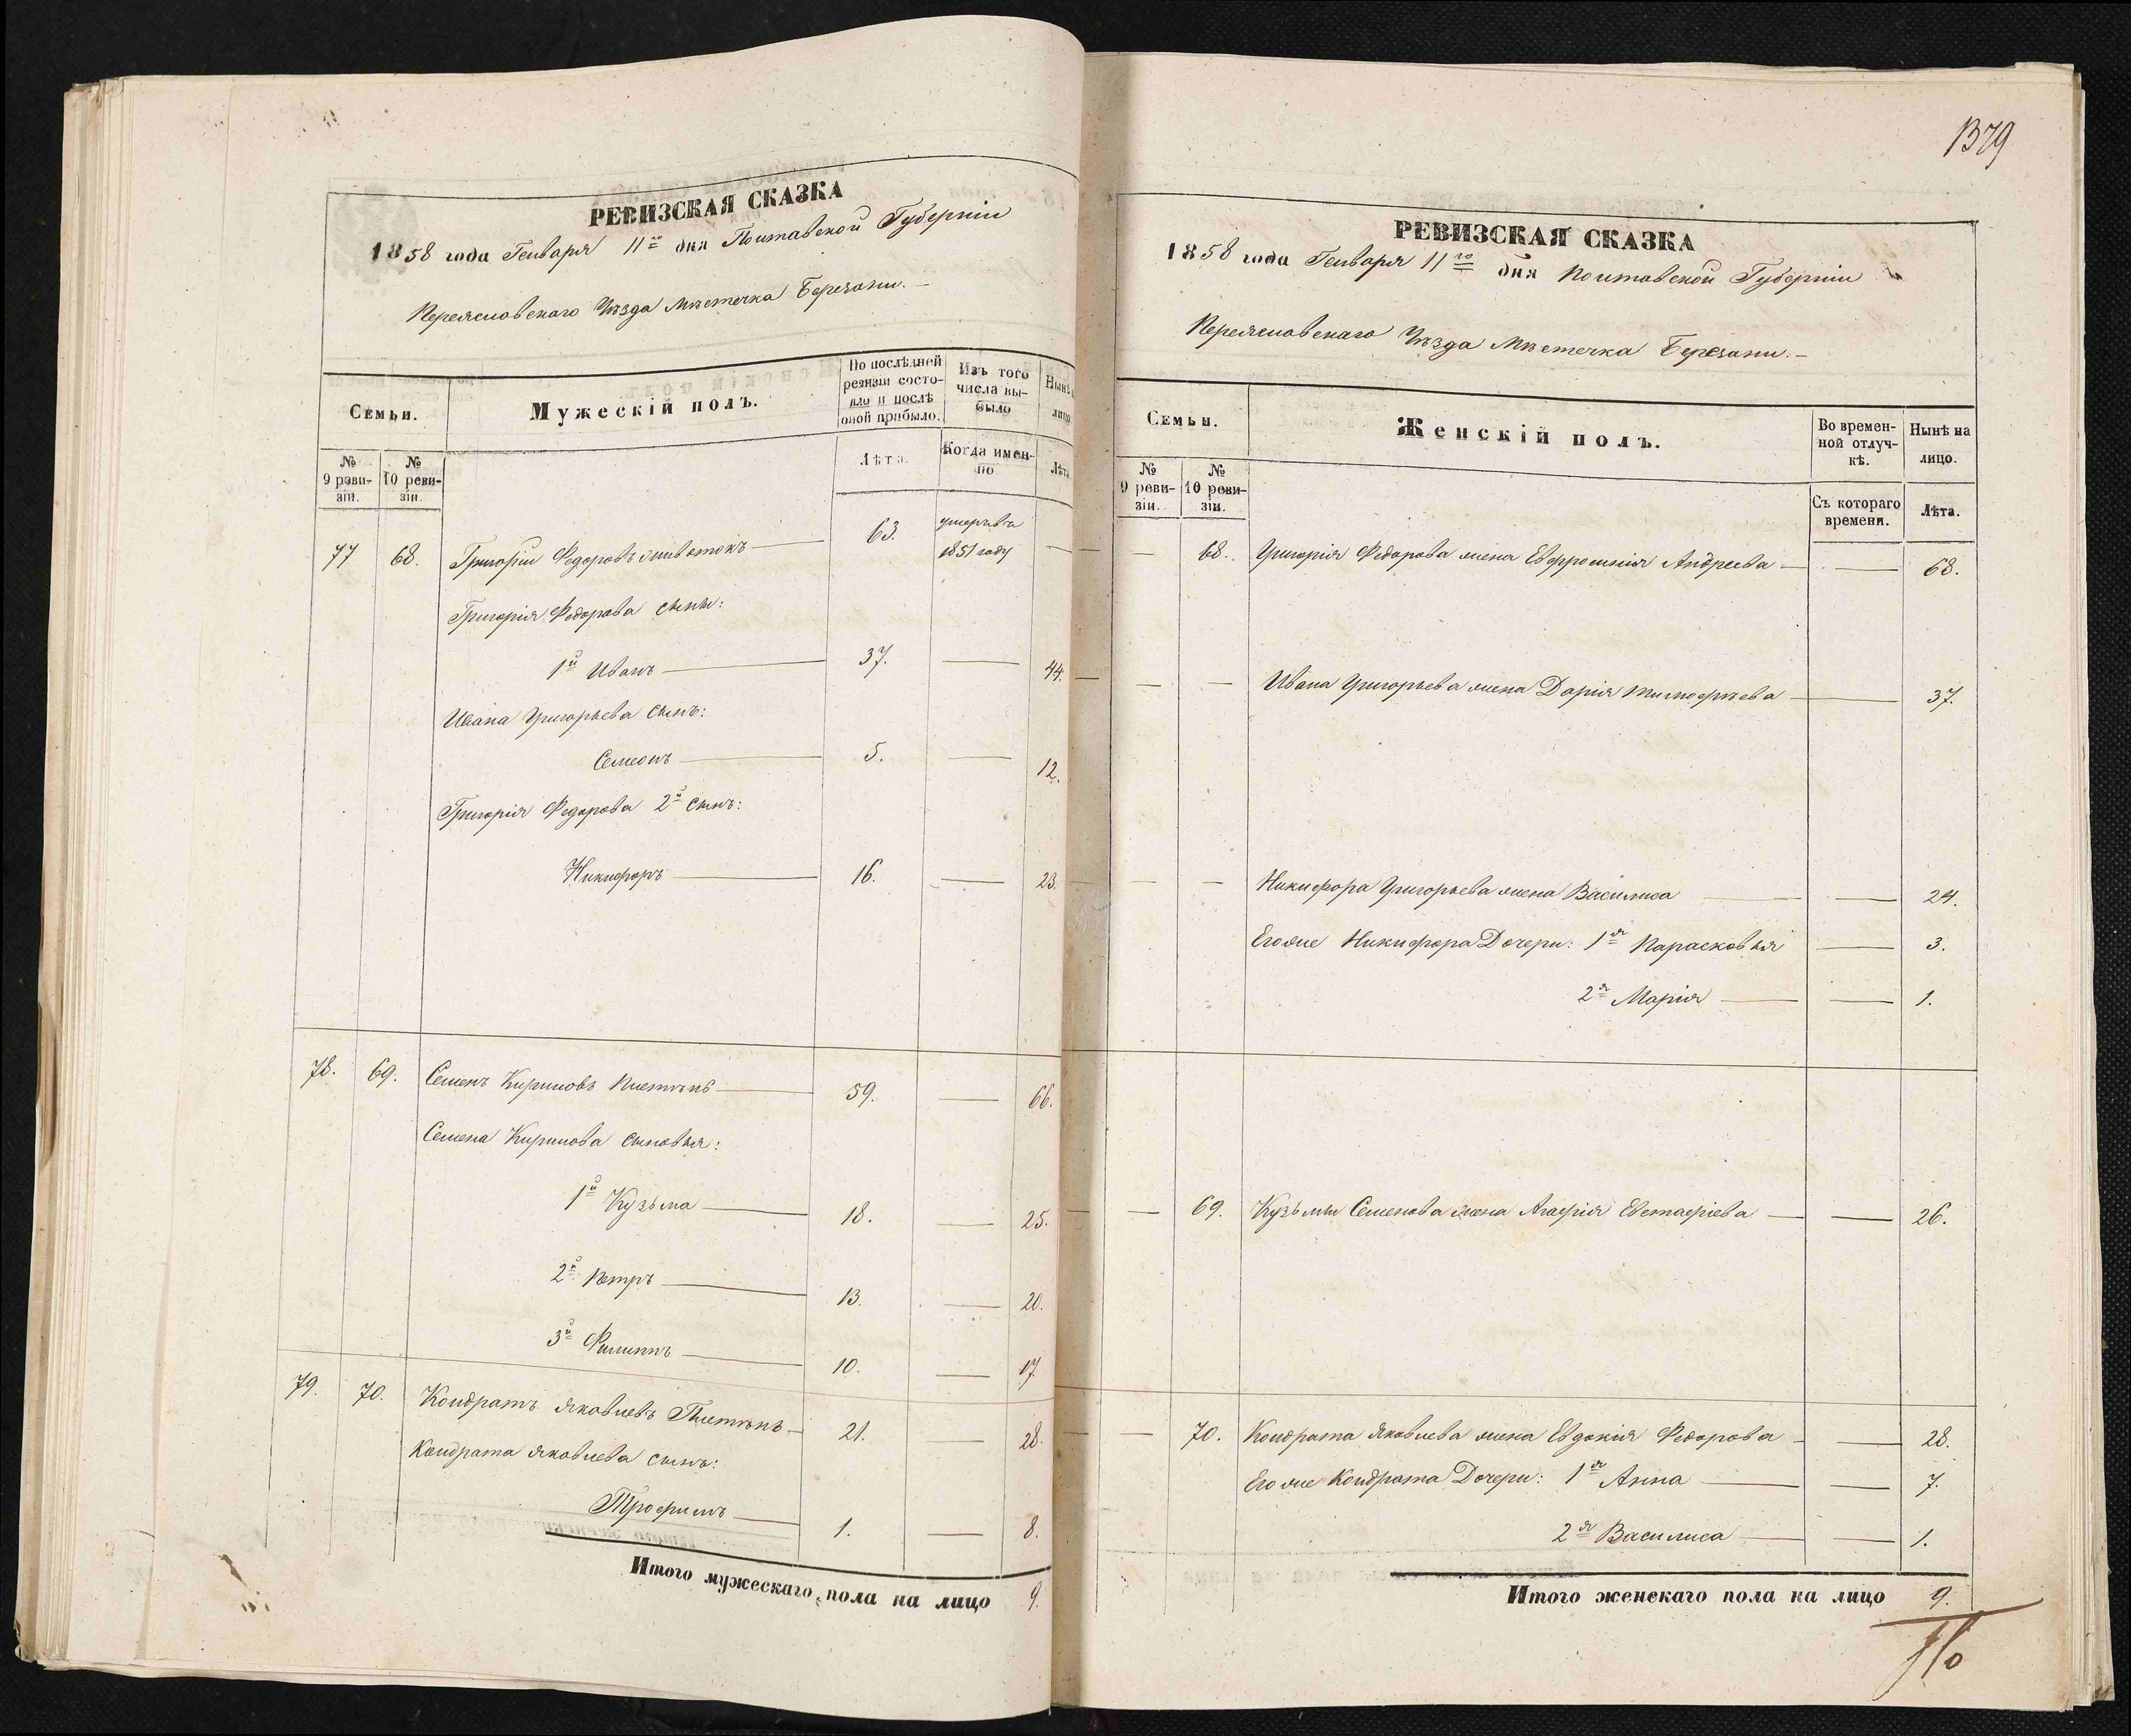 РЕВИЗСКАЯ СКАЗКА
1858 года Генваря 11го дня Полтавской Губерніи
Переяславскаго Уѣзда Мѣстечка Березани.
Семьи.
Мужескій полъ.
По послѣдней ревизіи состояло и послѣ оной прибыло.
Изъ того числа выбыло
Нынѣ
лицо
№ 9 ревизіи.
№ 10 ревизіи.
Лѣта.
Когда именно
Лѣта
77 68. Григорій Федоровъ 63. умеръ въ 1851 году —
Григорія Федорова сыны:
1й Иванъ 37. — 44.
Ивана Григорьева сынъ:
Семеонъ 5. — 12.
Григорія Федорова 2й сынъ:
Никифоръ 16. — 23.
78. 69. Семенъ Кириловъ 59. — 66.
Семена Кирилова сыновья:
1й Кузьма 18. — 25.
2й Петръ 13. — 20.
3й Филиппъ 10. — 17.
79. 70. Кондратъ Яковлевъ 21. — 28.
Кондрата Яковлева сынъ:
Трофимъ 1. — 8.
Итого мужескаго пола на лицо 9.
1379
РЕВИЗСКАЯ СКАЗКА
1858 года Генваря 11го дня Полтавской Губерніи
Переяславскаго Уѣзда Мѣстечка Березани.
Семьи.
Женскій полъ.
Во временной отлучкѣ.
Нынѣ на лицо.
№ 9 ревизіи.
№ 10 ревизіи.
Съ котораго времени.
Лѣта.
— 68. Григорія Федорова жена Евфросинія Андреева — 68.
— — Ивана Григорьева жена Дарія Тимофѣева — 37.
— — Никифора Григорьева жена Василиса — 24.
Его же Никифора Дочери: 1я Парасковья — 3.
2я Марія — 1.
— 69. Кузьмы Семенова жена Агафія Евстафіева — 26.
— 70. Кондрата Яковлева жена Евдокія Федорова — 28.
Его же Кондрата Дочери: 1я Анна — 7.
2я Василиса — 1.
Итого женскаго пола на лицо 9.